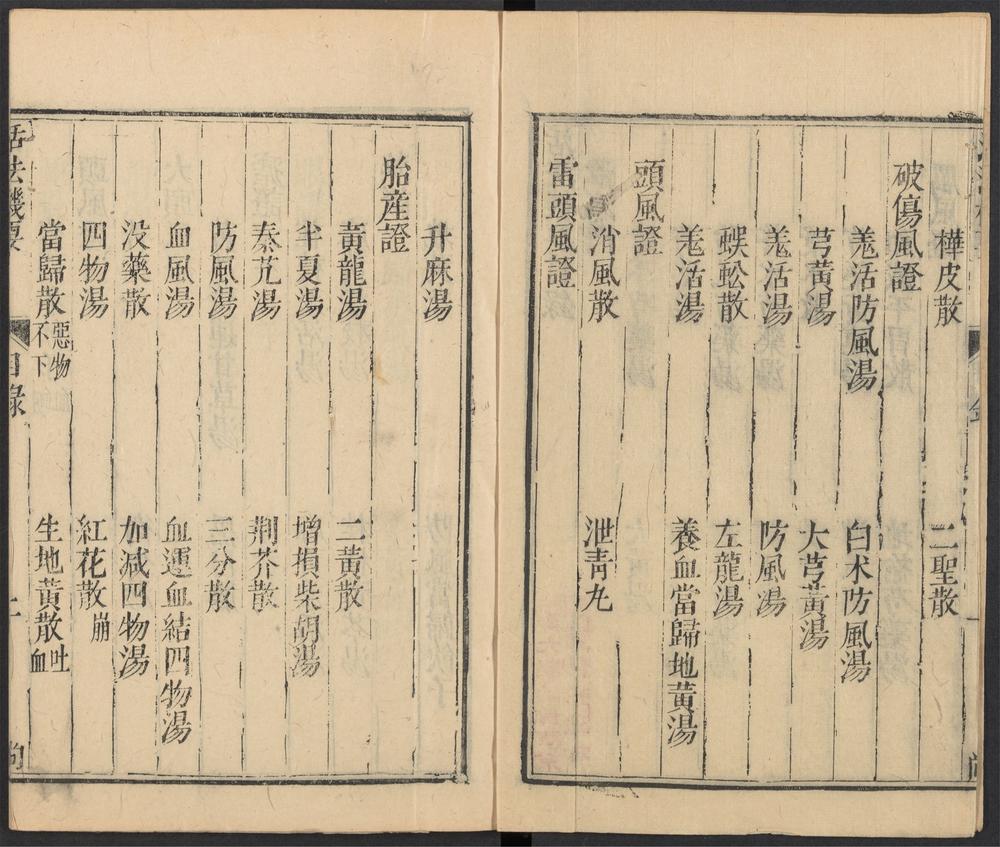 樺皮散 二聖散
破傷風證
羗活防風湯 白术防風湯
芎黃湯 大芎黃湯
羗活湯 防風湯
蜈蚣散 左龍湯
羗活湯 養血當歸地黃湯
頭風證
消風散 泄靑丸
雷頭風證
升麻湯
胎産證
黃龍湯 二黃散
半夏湯 增損柴胡湯
秦艽湯 荆芥散
防風湯 三分散
血風湯 血運血結四物湯
没藥散 加减四物湯
四物湯 紅花散崩
當歸散惡物不下 生地黃散吐血
活法機要 目錄